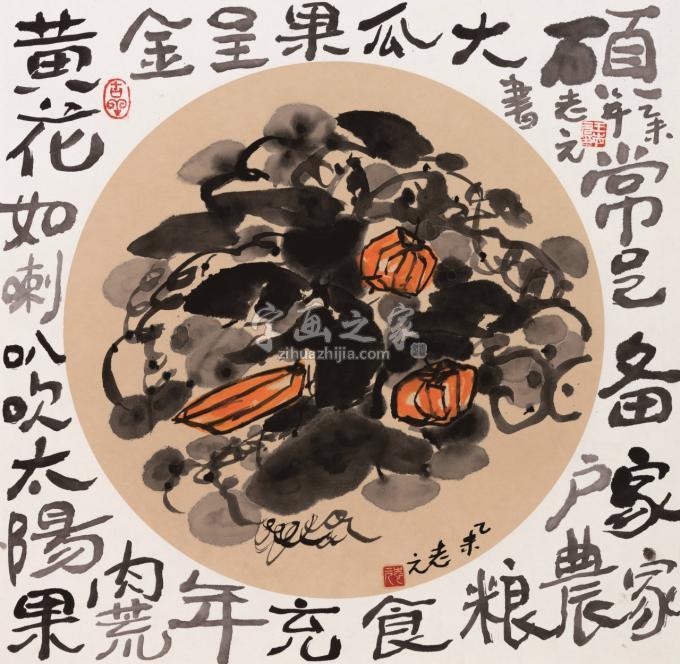 硕大瓜果呈金黄
花如喇叭吹太陽
果肉荒年充食粮
農家户家备足常
乙未年
老元
書
乙未
老元
字画之家
zihuazhijia.com